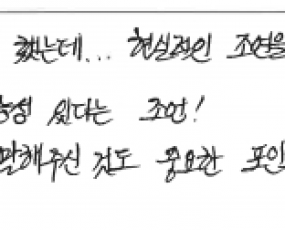 했는데... 현실적인 조언을
있다는 조언!
말해주신 것도 중요한 포인